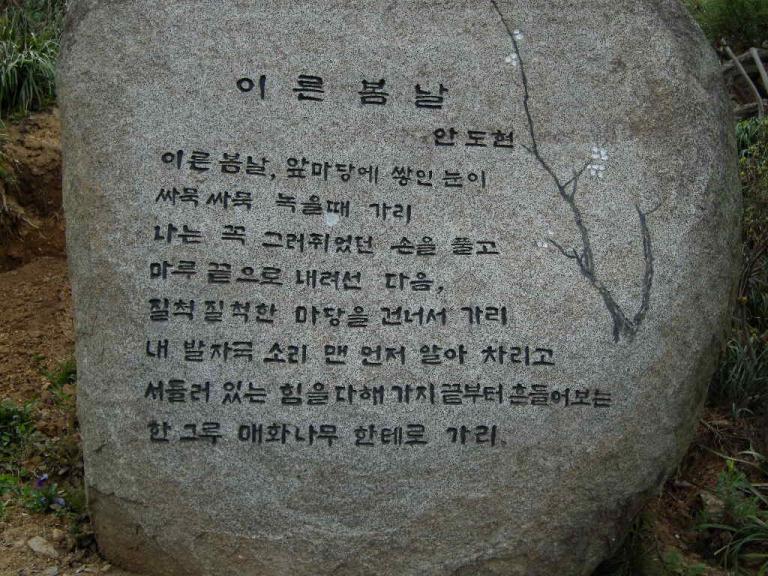 이른 봄 날
안도현
이른 봄날, 앞마당에 쌓인 눈이
싸묵 싸묵 녹을때 가리
나는 꼭 그러쥐었던 손을 풀고
마루 끝으로 내려선 다음,
질척 질척한 마당을 건너서 가리
내 발자국 소리 맨 먼저 알아 차리고
서둘러 있는 힘을 다해 가지끝부터 흔들어보는
한 그루 매화나무 한테로 가리.